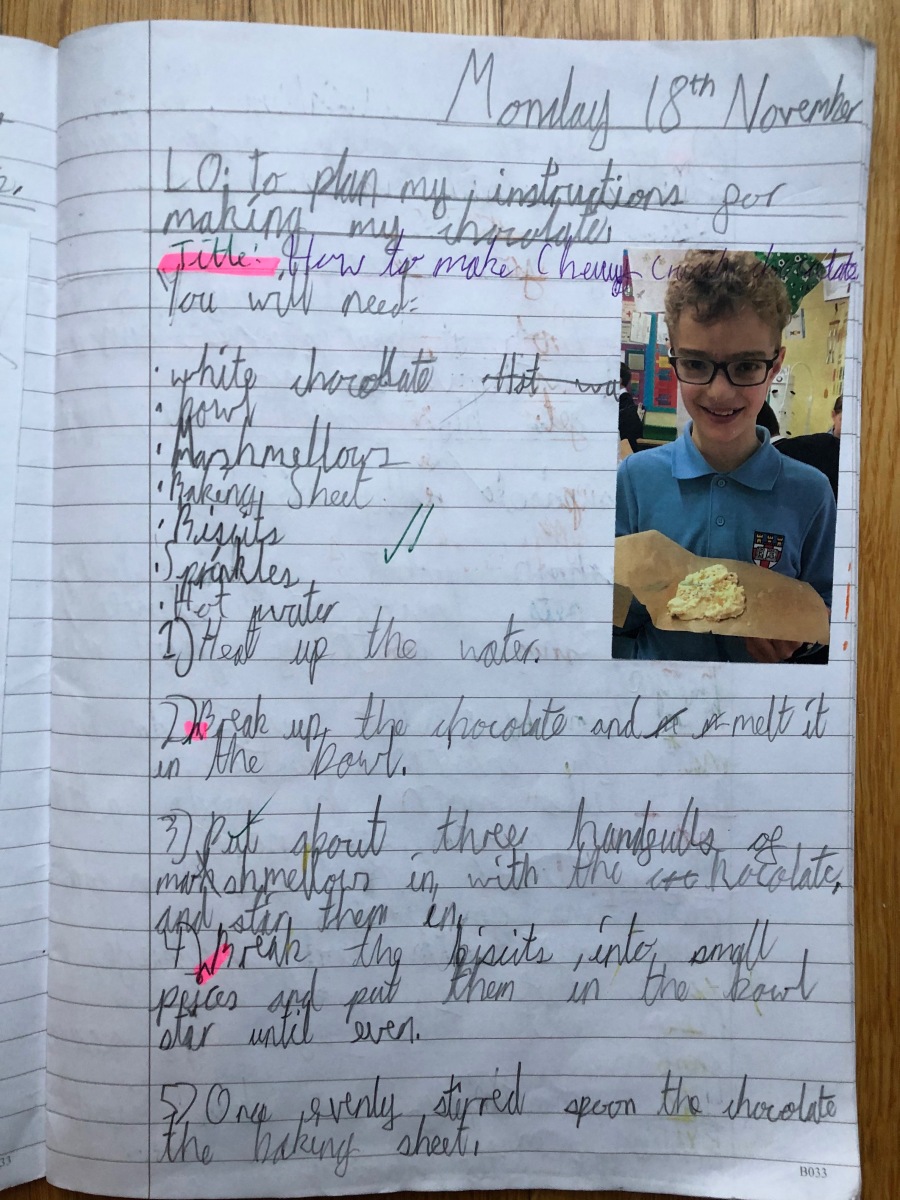 Monday 18th November
LO: to plan my instructions for
making my chocolate.
Title: How to make Chewy Crunch chocolate
You will need:
· white chocollate Hot wa
· Bowl
· Marshmellows
· Baking Sheet
· Biscits
· Sprinkles
· Hot water
1) Heat up the water.
2) Break up the chocolate and melt it
in the bowl.
3) Put about three handfulls of
marshmellows in, with the chocolate,
and stir them in.
4) Break the biscits into small
peices and put them in the bowl
star until even.
5) Once evenly stirred spoon the chocolate
the baking sheet.
B033